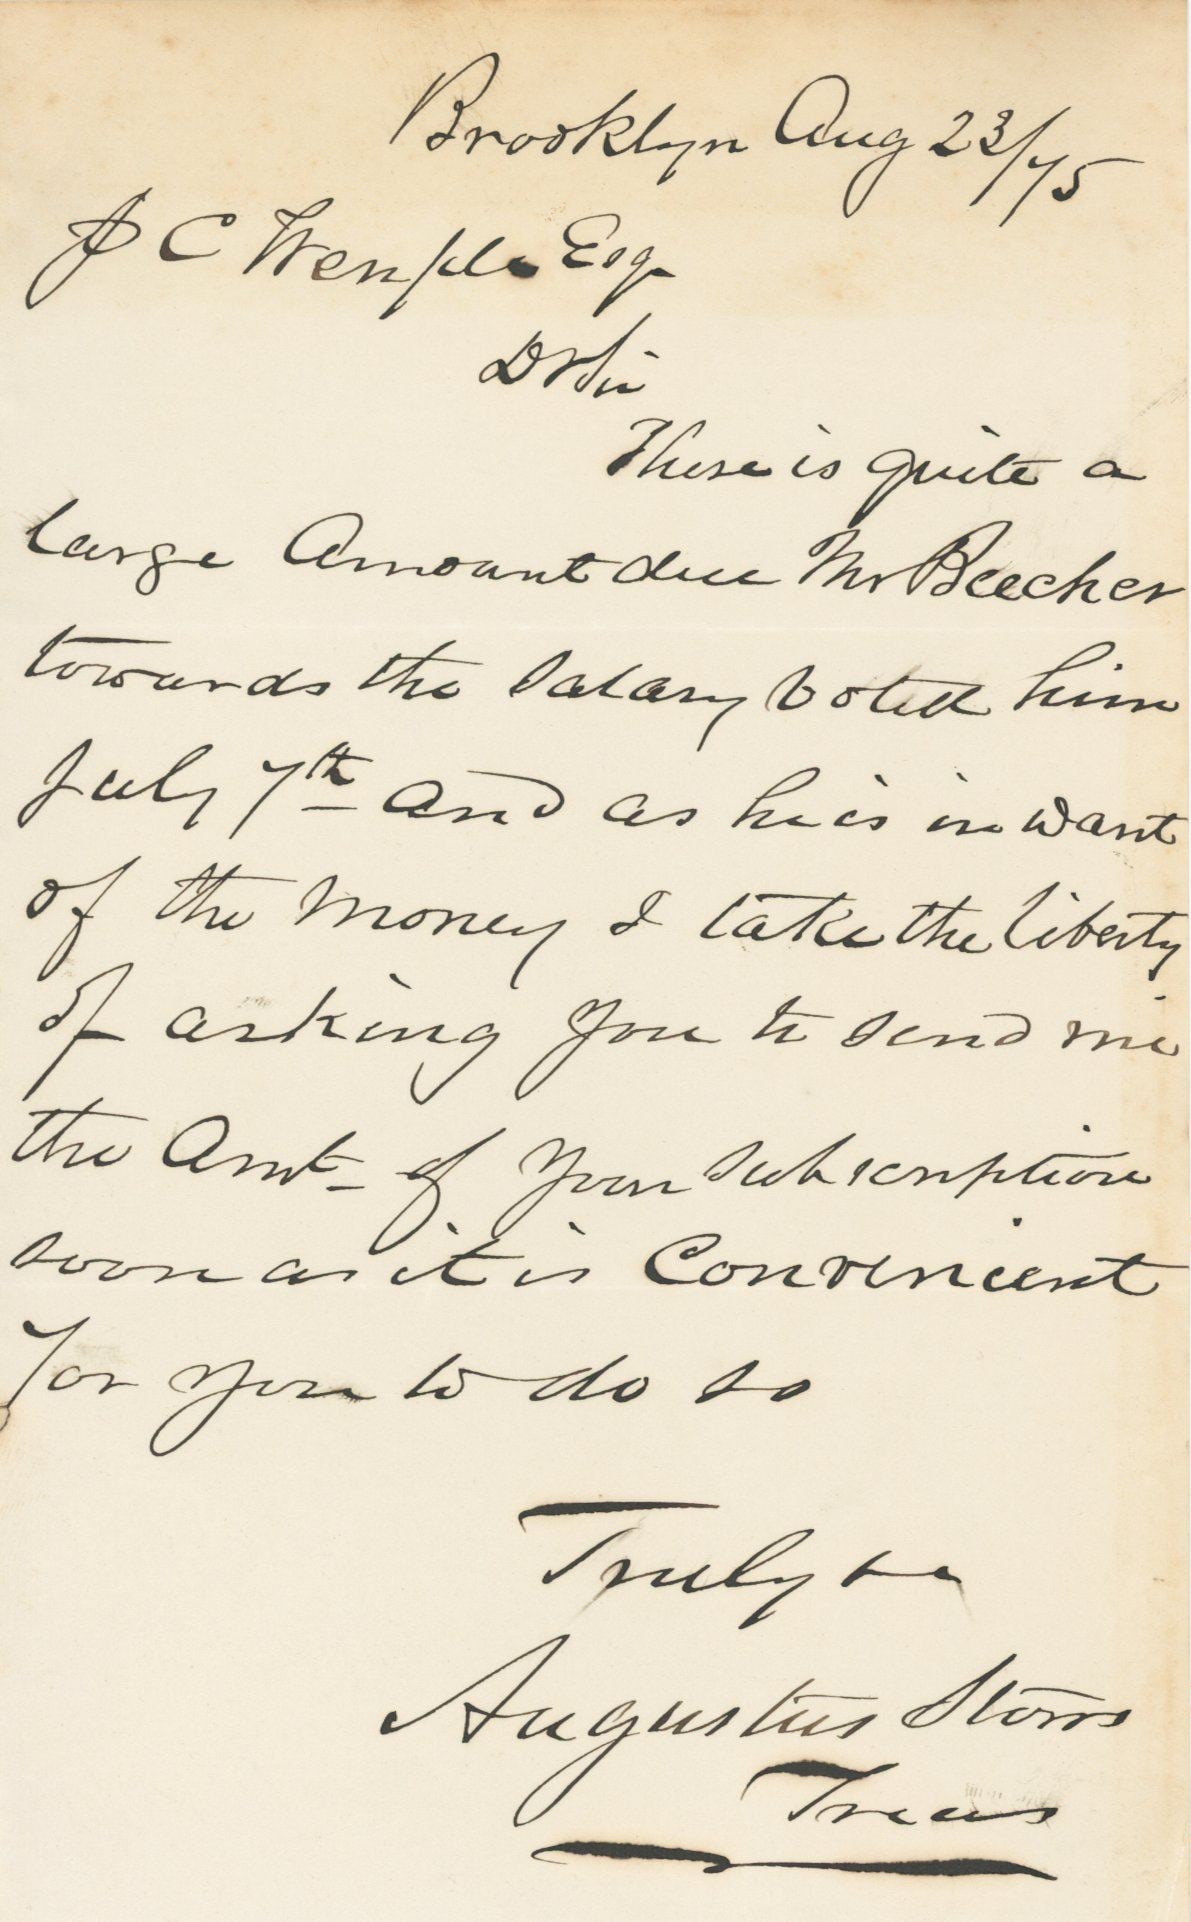 Brooklyn Aug 23/75
J C Wemple Esq
D Sir
There is quite a
large Amount due Mr Beecher
towards the Salary Voted him
July 7th and as he is in want
of the Money I take the liberty
of asking you to send me
the Amt of your subscription
soon as it is Convenient
for you to do so
Truly
Augustus Storrs
Treas